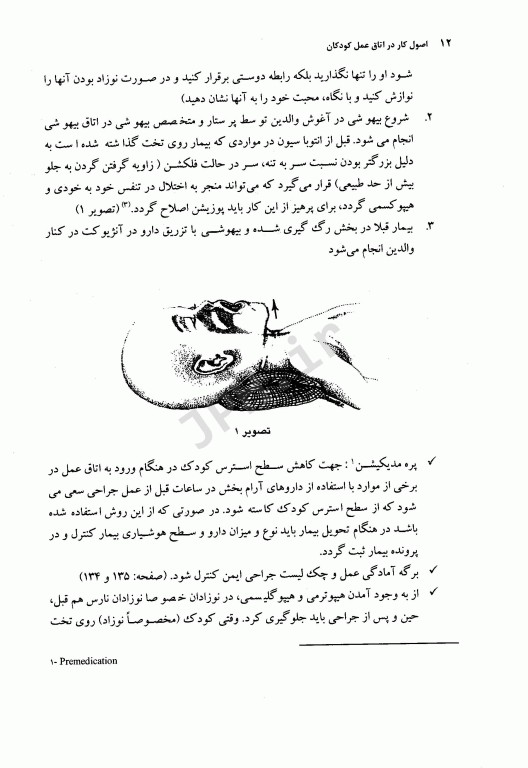 ۱۲ اصول کار در اتاق عمل کودکان
شود او را تنها نگذارید بلکه رابطه دوستی برقرار کنید و در صورت نوزاد بودن آنها را
نوازش کنید و با نگاه، محبت خود را به آنها نشان دهید)
۲. شروع بیهوشی در آغوش والدین توسط پرستار و متخصص بیهوشی در اتاق بیهوشی
انجام می شود. قبل از انتوباسیون در مواردی که بیمار روی تخت گذاشته شده است به
دلیل بزرگتر بودن نسبت سر به تنه، سر در حالت فلکشن ( زاویه گرفتن گردن به جلو
بیش از حد طبیعی) قرار می‌گیرد که می‌تواند منجر به اختلال در تنفس خود به خودی و
هیپوکسمی گردد، برای پرهیز از این کار باید پوزیشن اصلاح گردد.(۳) (تصویر ۱)
۳. بیمار قبلا در بخش رگ گیری شده و بیهوشی با تزریق دارو در آنژیوکت در کنار
والدین انجام می‌شود
JPub.ir
تصویر ۱
✓ پره مدیکیشن۱ : جهت کاهش سطح استرس کودک در هنگام ورود به اتاق عمل در
برخی از موارد با استفاده از داروهای آرام بخش در ساعات قبل از عمل جراحی سعی می
شود که از سطح استرس کودک کاسته شود. در صورتی که از این روش استفاده شده
باشد در هنگام تحویل بیمار باید نوع و میزان دارو و سطح هوشیاری بیمار کنترل و در
پرونده بیمار ثبت گردد.
✓ برگه آمادگی عمل و چک لیست جراحی ایمن کنترل شود. (صفحه: ۱۳۵ و ۱۳۴)
✓ از به وجود آمدن هیپوترمی و هیپوگلیسمی، در نوزادان خصوصا نوزادان نارس هم قبل،
حین و پس از جراحی باید جلوگیری کرد. وقتی کودک (مخصوصاً نوزاد) روی تخت
۱- Premedication